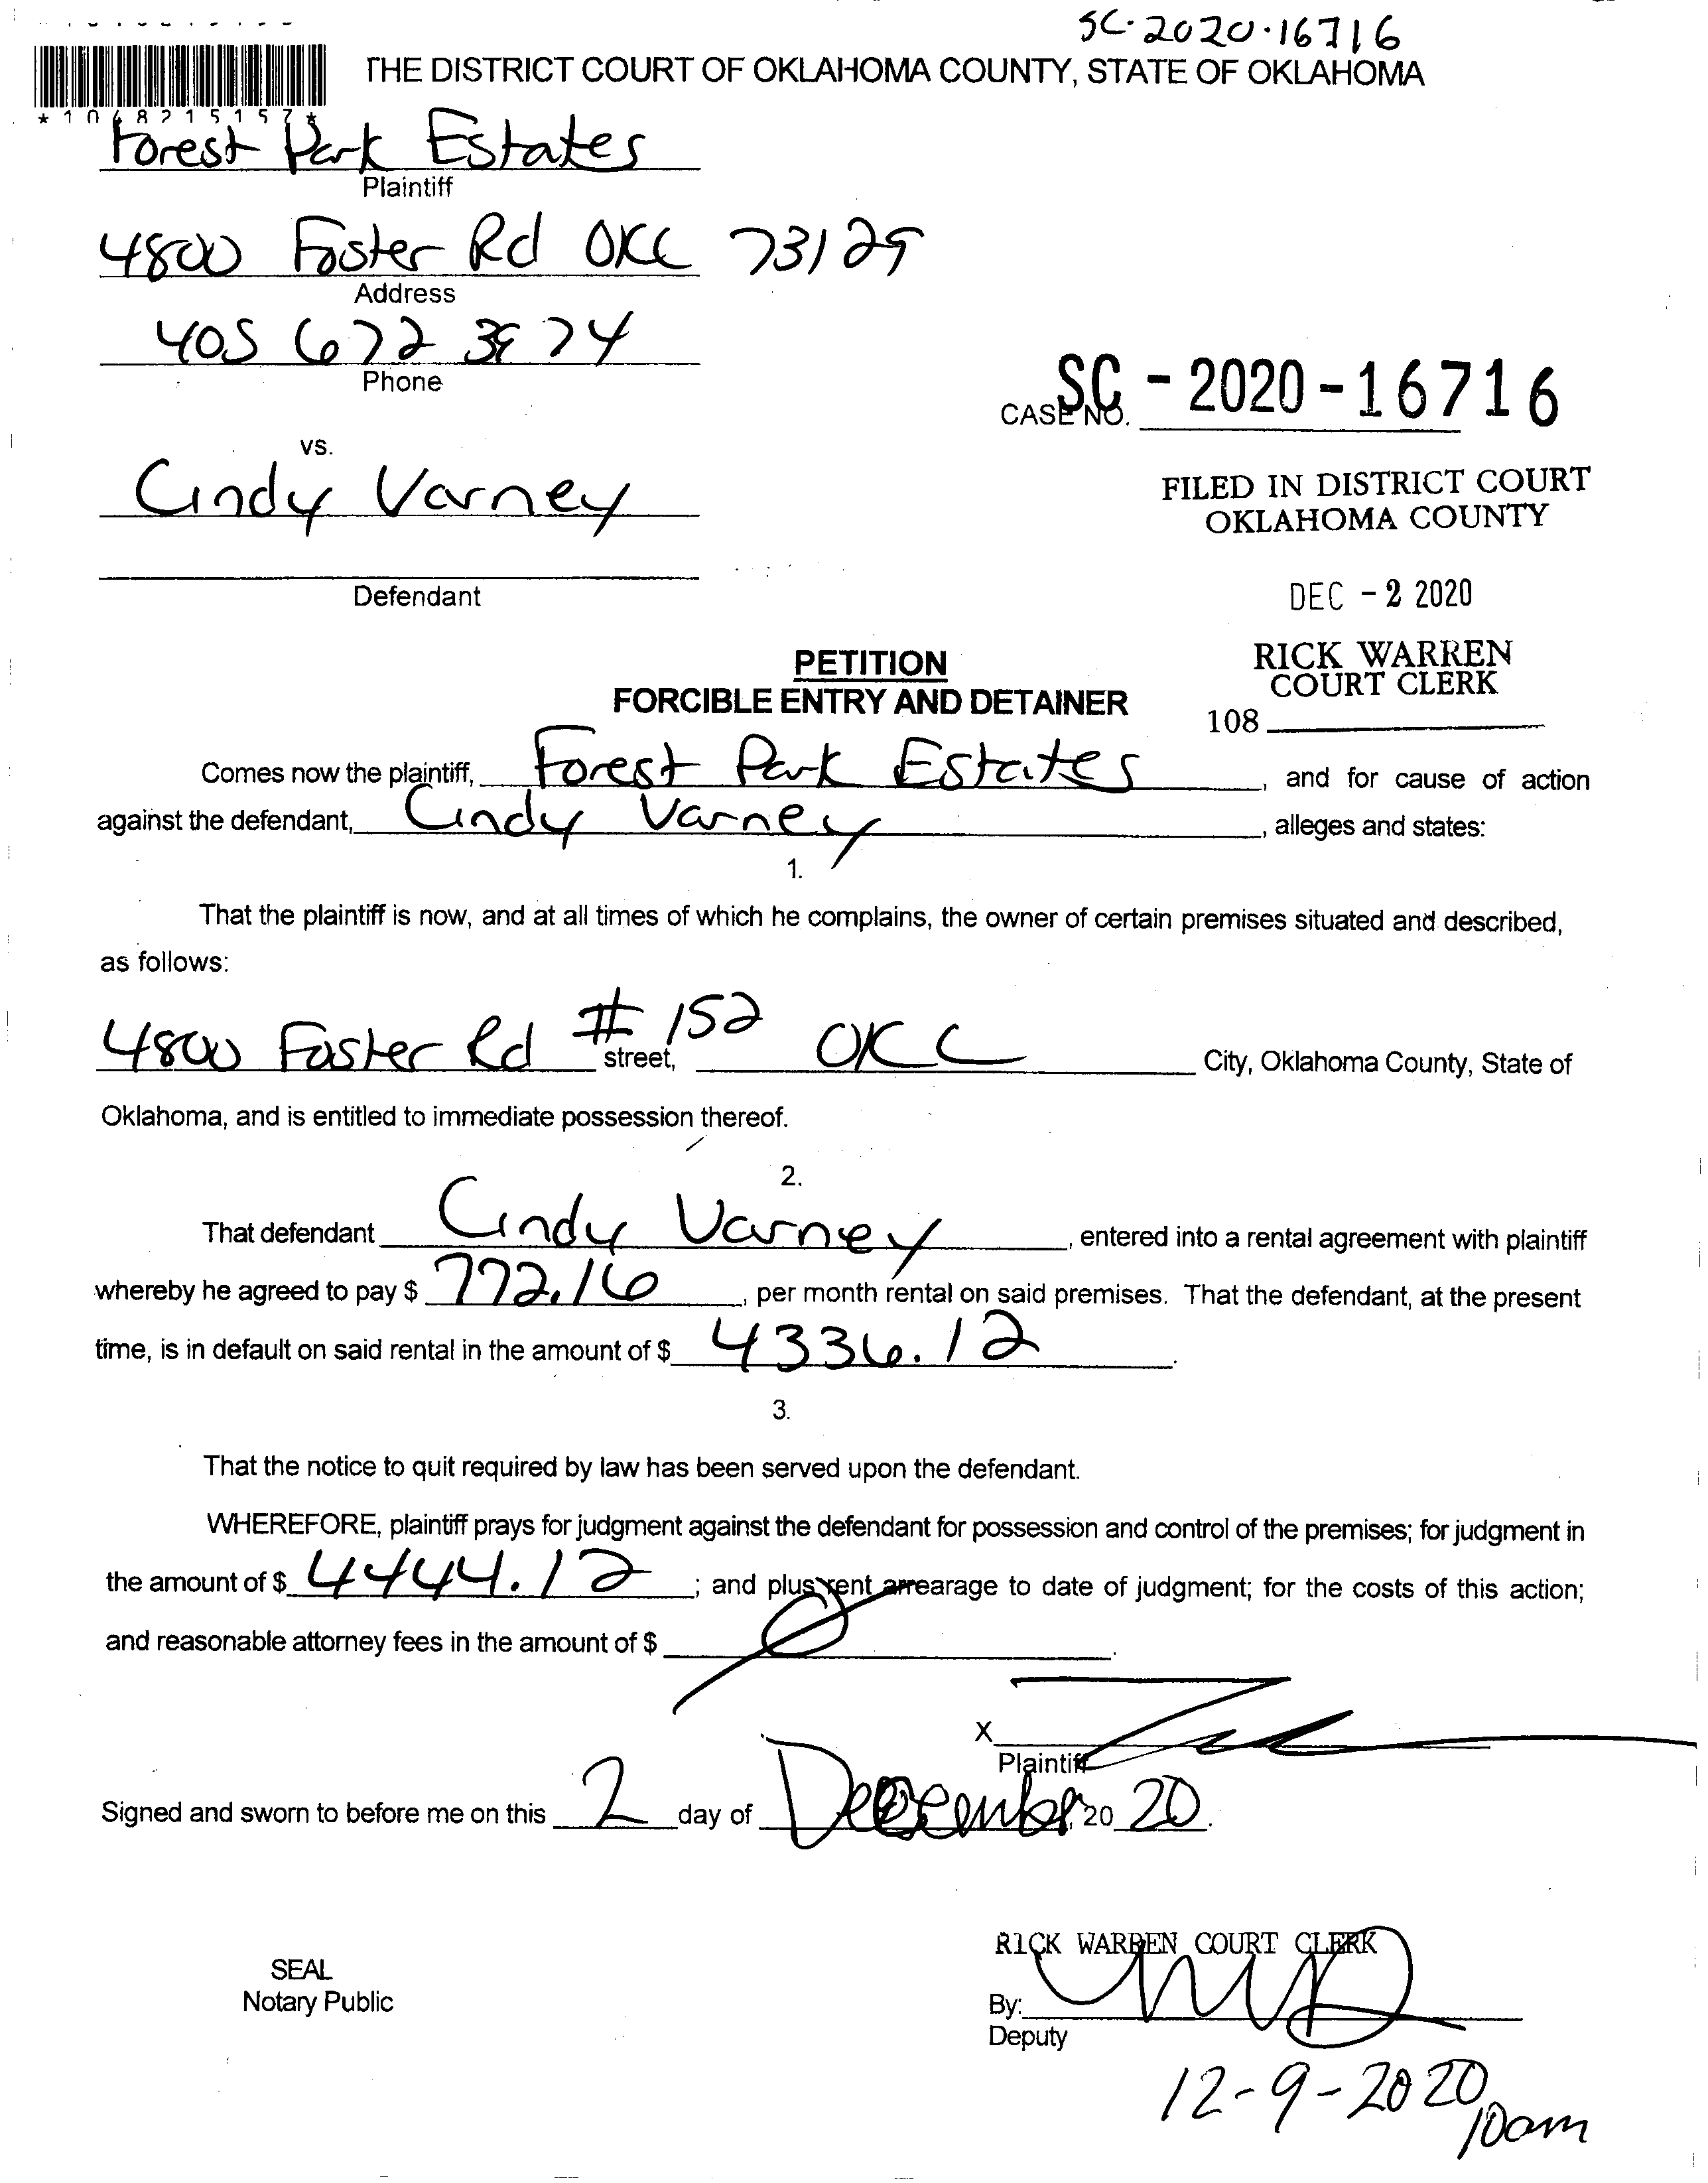 SC-2020-16716
THE DISTRICT COURT OF OKLAHOMA COUNTY, STATE OF OKLAHOMA
*1048215157*
Forest Park Estates
Plaintiff
4800 Foster Rd OKC 73129
Address
405 672 3974
Phone
CASE NO. SC - 2020 - 16716
vs.
Cindy Varney
FILED IN DISTRICT COURT
OKLAHOMA COUNTY
Defendant
DEC - 2 2020
PETITION
RICK WARREN
COURT CLERK
FORCIBLE ENTRY AND DETAINER
108
Comes now the plaintiff, Forest Park Estates, and for cause of action
against the defendant, Cindy Varney, alleges and states:
1.
That the plaintiff is now, and at all times of which he complains, the owner of certain premises situated and described,
as follows:
4800 Foster Rd #152 street, OKC City, Oklahoma County, State of
Oklahoma, and is entitled to immediate possession thereof.
2.
That defendant Cindy Varney, entered into a rental agreement with plaintiff
whereby he agreed to pay $ 772.16, per month rental on said premises. That the defendant, at the present
time, is in default on said rental in the amount of $ 4336.12.
3.
That the notice to quit required by law has been served upon the defendant.
WHEREFORE, plaintiff prays for judgment against the defendant for possession and control of the premises; for judgment in
the amount of $ 4444.12; and plus rent arrearage to date of judgment; for the costs of this action;
and reasonable attorney fees in the amount of $ .
X
Plaintiff
Signed and sworn to before me on this 2 day of December, 20 20.
RICK WARREN COURT CLERK
SEAL
Notary Public
By:
Deputy
12-9-2020
10am